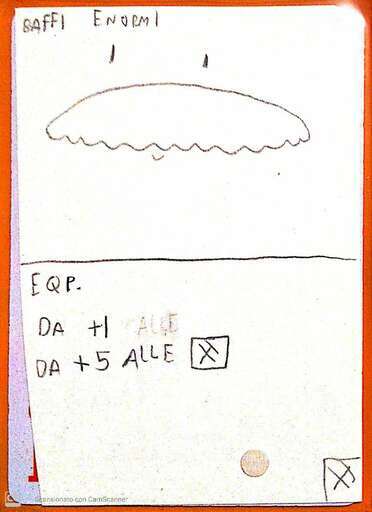 BAFFI ENORMI
EQP.
DA +1 ALLE
DA +5 ALLE
Scansionato con CamScanner